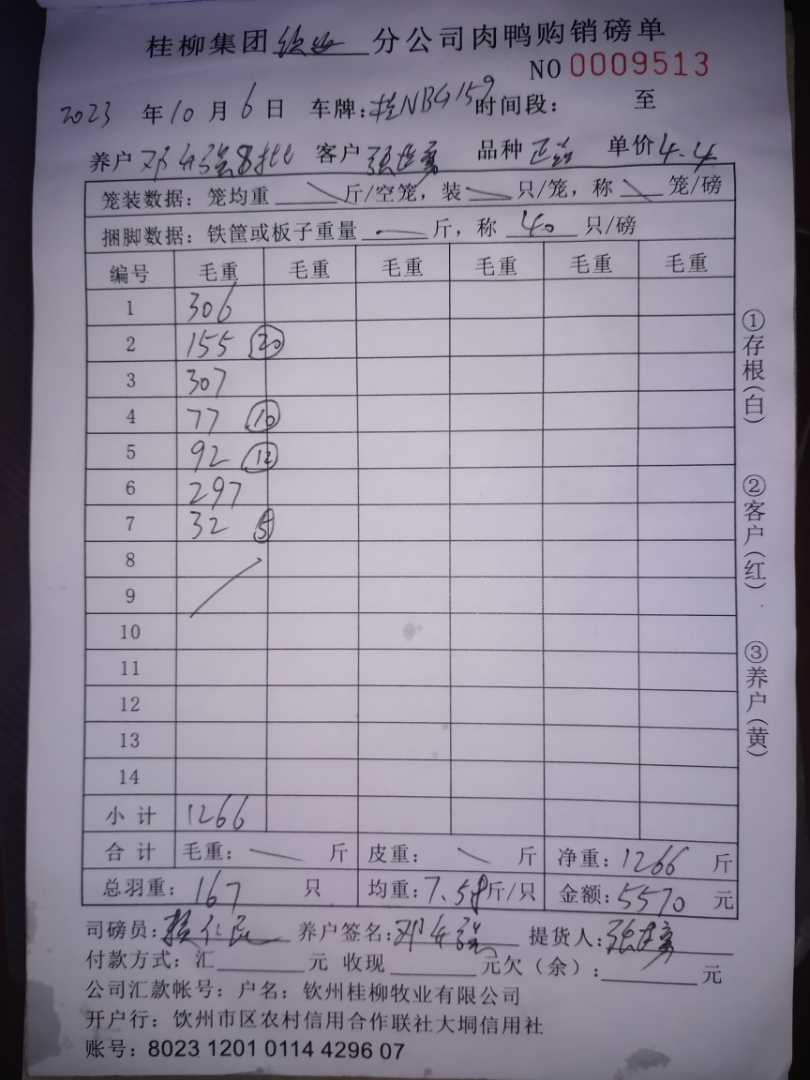 桂柳集团钦州分公司肉鸭购销磅单
NO 0009513
2023 年 10 月 6 日 车牌: 桂NBG159 时间段: 至
养户 邓 强8批 客户 张世富 品种 单价 4.4
笼装数据: 笼均重 斤/空笼, 装 只/笼, 称 笼/磅
捆脚数据: 铁筐或板子重量 斤, 称 40 只/磅
编号 毛重 毛重 毛重 毛重 毛重 毛重
1 306
2 155 20
3 307
4 77 10
5 92 12
6 297
7 32 5
8
9
10
11
12
13
14
小 计 1266
合 计 毛重: 斤 皮重: 斤 净重: 1266 斤
总羽重: 167 只 均重: 7.58 斤/只 金额: 5570 元
司磅员: 养户签名: 邓 强 提货人: 张世富
付款方式: 汇 元 收现 元欠(余): 元
公司汇款帐号: 户名: 钦州桂柳牧业有限公司
开户行: 饮州市区农村信用合作联社大垌信用社
账号: 8023 1201 0114 4296 07
①存根(白)
②客户(红)
③养户(黄)